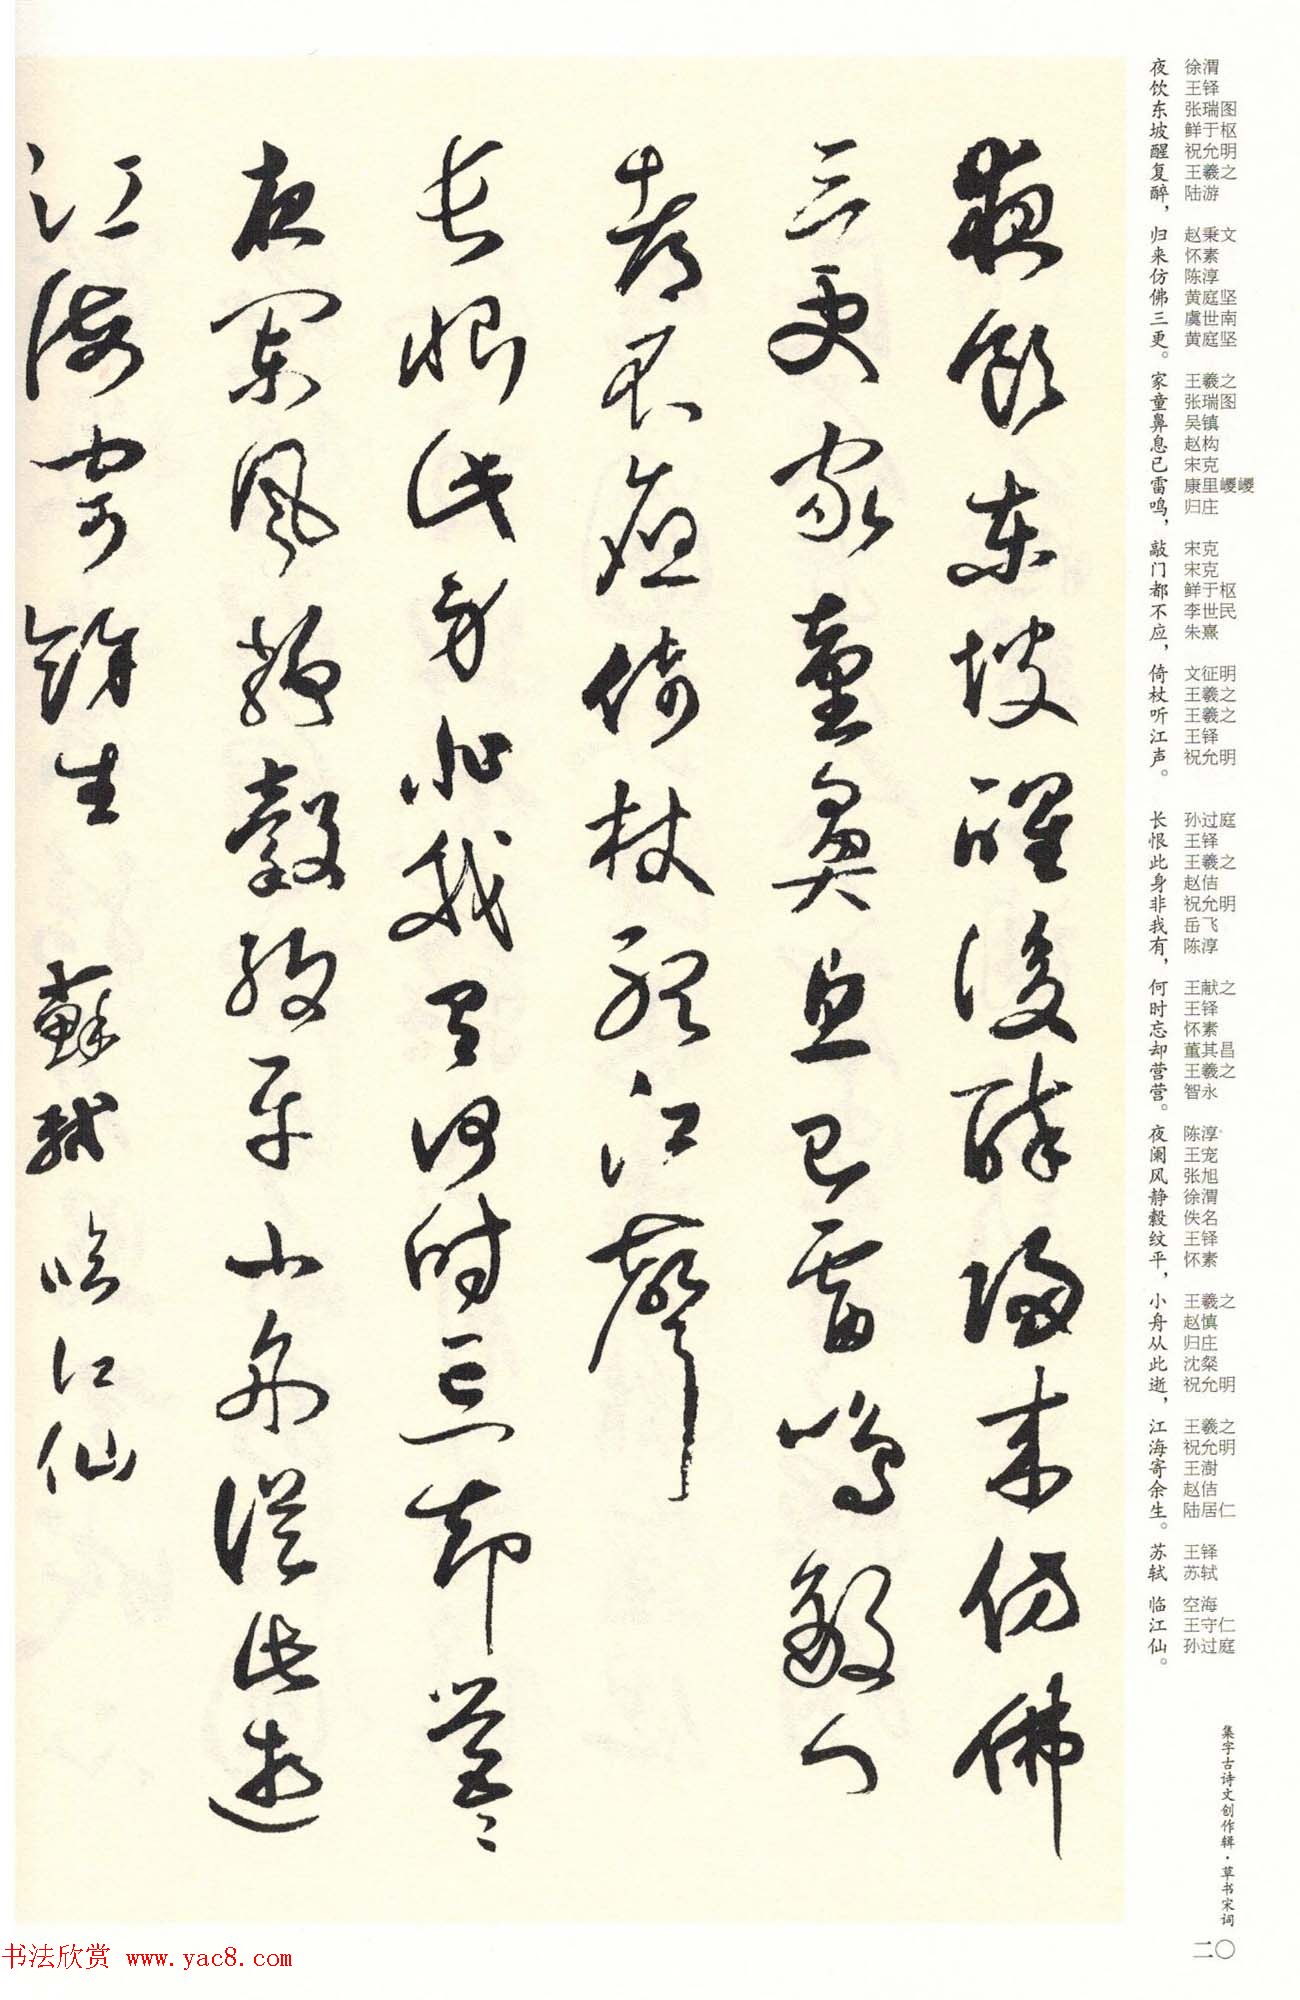 夜飲東坡醒復醉歸來仿佛
三更家童鼻息已雷鳴敲门
都不應倚杖聽江聲
長恨此身非我有何時忘却營〻
夜闌風靜縠紋平小舟從此逝
江海寄餘生 蘇軾 臨江仙
夜 徐渭
饮 王铎
东 张瑞图
坡 鲜于枢
醒 祝允明
复 王羲之
醉， 陆游
归 赵秉文
来 怀素
仿 陈淳
佛 黄庭坚
三 虞世南
更。 黄庭坚
家 王羲之
童 张瑞图
鼻 吴镇
息 赵构
已 宋克
雷 康里巎巎
鸣， 归庄
敲 宋克
门 宋克
都 鲜于枢
不 李世民
应， 朱熹
倚 文征明
杖 王羲之
听 王羲之
江 王铎
声。 祝允明
长 孙过庭
恨 王铎
此 王羲之
身 赵佶
非 祝允明
我 岳飞
有， 陈淳
何 王献之
时 王铎
忘 怀素
却 董其昌
营 王羲之
营。 智永
夜 陈淳
阑 王宠
风 张旭
静 徐渭
縠 佚名
纹 王铎
平， 怀素
小 王羲之
舟 赵慎
从 归庄
此 沈粲
逝， 祝允明
江 王羲之
海 祝允明
寄 王澍
余 赵佶
生。 陆居仁
苏 王铎
轼 苏轼
临 空海
江 王守仁
仙。 孙过庭
集字古诗文创作辑·草书宋词
二〇
书法欣赏 www.yac8.com